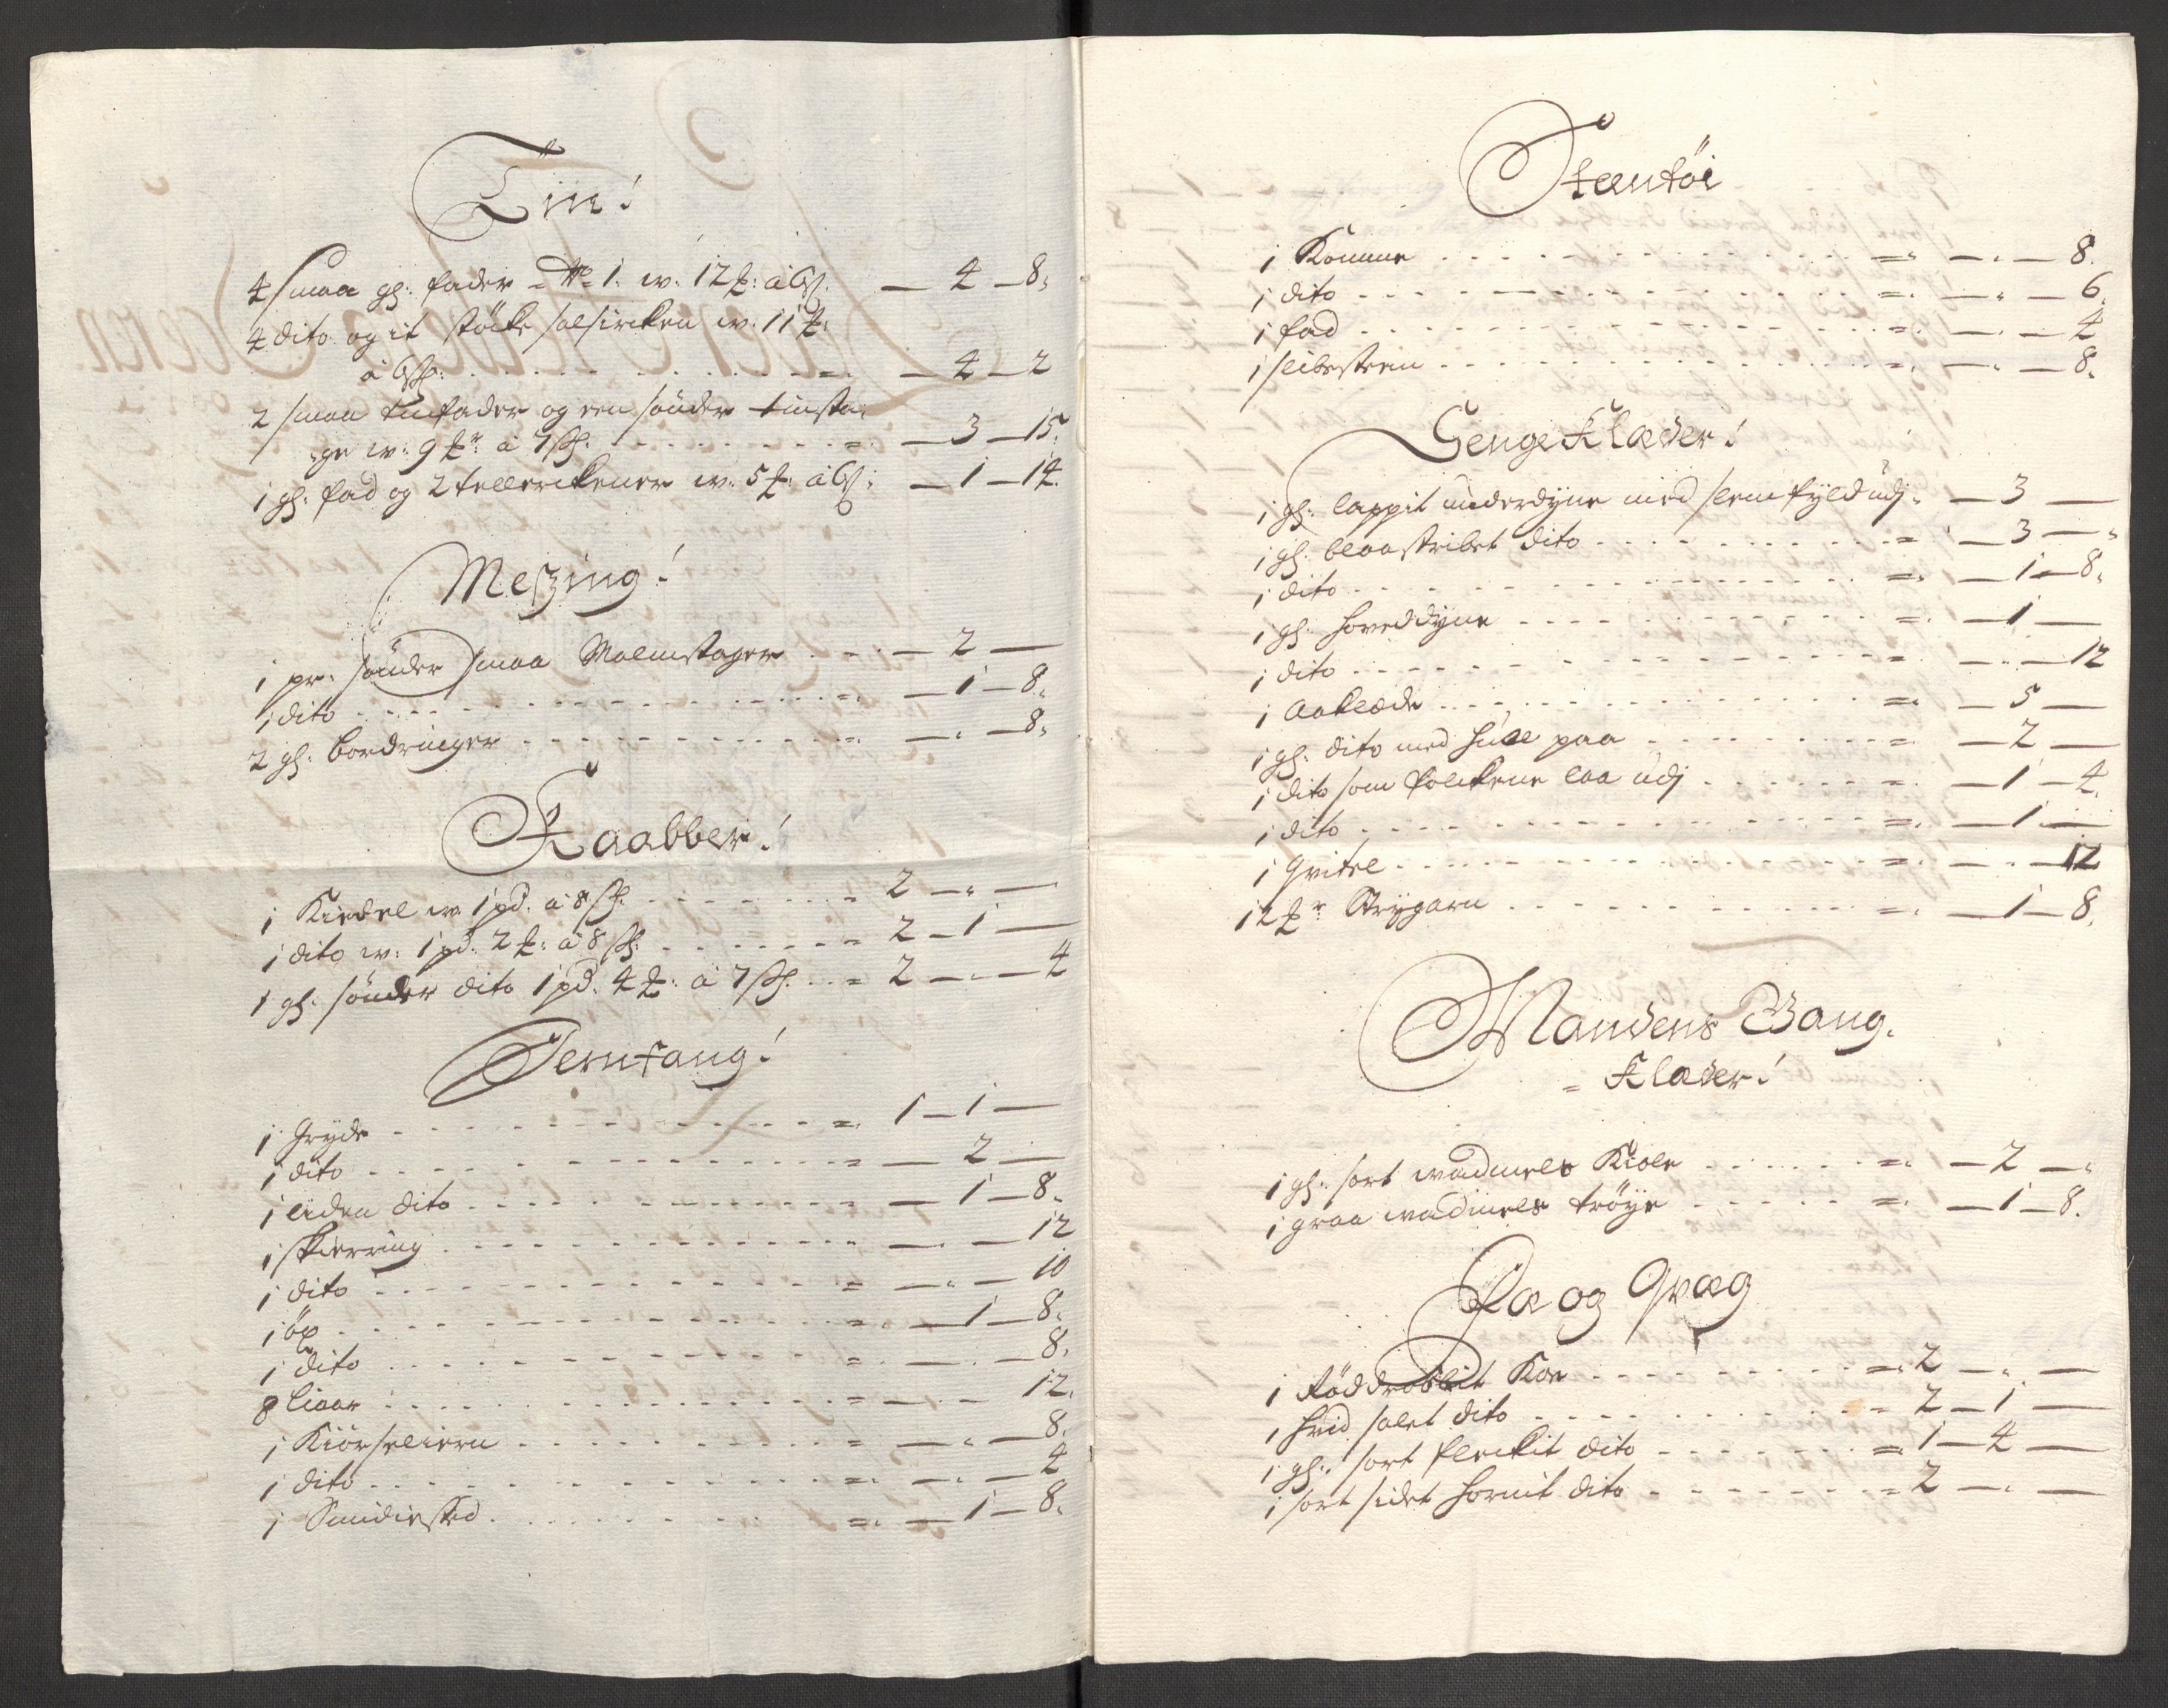 Tin!
4 smaa gl: fader No 1. w: 12 ℔: à 6 s. — 4 — 8.
4 dito og it støcke w: 11 ℔:
à 6 sh: — 4 — 2
2 smaa tinfader og een sønder tinsta-
ge w: 9 ℔r à 7 sh: — 3 — 15.
1 gl: fad og 2 tellerckener w: 5 ℔: à 6 s: — 1 — 14.
Meszing!
1 pr: sønder smaa Malmstager — 2 —
1 dito — 1 — 8.
2 gl: bordringer — " — 8.
Kaabber!
1 Kiedel w: 1 pd. à 8 sh. 2 — " —
1 dito w: 1 pd. 2 ℔: à 8 sh. 2 — 1 —
1 gl: sønder dito 1 pd. 4 ℔: à 7 sh. 2 — " — 4
Jerntang!
1 Gryde 1 — 1 —
1 dito — 2 —
1 liden dito — 1 — 8.
1 skierring — " — 12
1 dito — " — 10
1 øx — 1 — 8.
1 dito — " — 8.
8 liaar — " — 12.
1 Kiørseliern — " — 8.
1 dito — " — 4
1 Smidiested — 1 — 8.
Steentöi
1 Komme — " — 8.
1 dito — " — 6.
1 fad — " — 4
1 slibesteen — " — 8.
Senge Klæder!
1 gl: lappit underdyne med slem fyld udj — 3 —
1 gl: blaastribet dito — 3 — "
1 dito — 1 — 8.
1 gl: hoveddyne — 1 —
1 dito — " — 12
1 Aaklæde — 5 —
1 gl: dito med hull paa — 2 —
1 dito som folckene laa udj — 1 — 4.
1 dito — 1 —
1 qvitel — " — 12
12 ℔r Strygarn — 1 — 8.
Mandens Gang-
Klæder!
1 gl: sort wadmels Kiole — 2 — "
1 graa wadmels trøye — 1 — 8.
Fæ og Qvæg
1 Rød Koe 2 — " —
1 hvid dito 2 — 1 —
1 gl: sort fleckit dito 1 — 4 —
1 sort sidet hornit dito 2 — " —